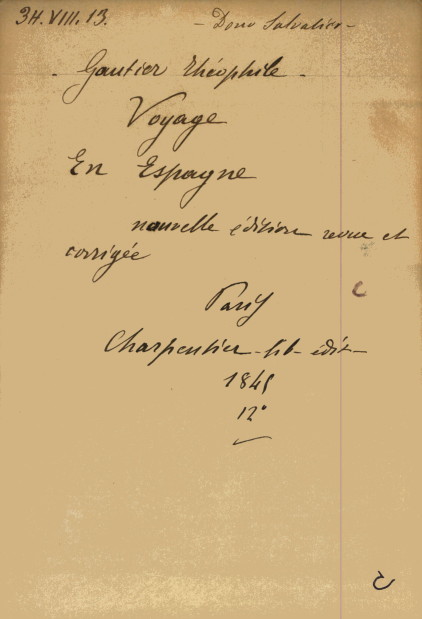 34.VIII.13. - Dono Salvatico -
- Gautier Théophile -
Voyage
En Espagne
nouvelle édition revue et
corrigée
Paris
Charpentier - lib - édit -
1845
12°